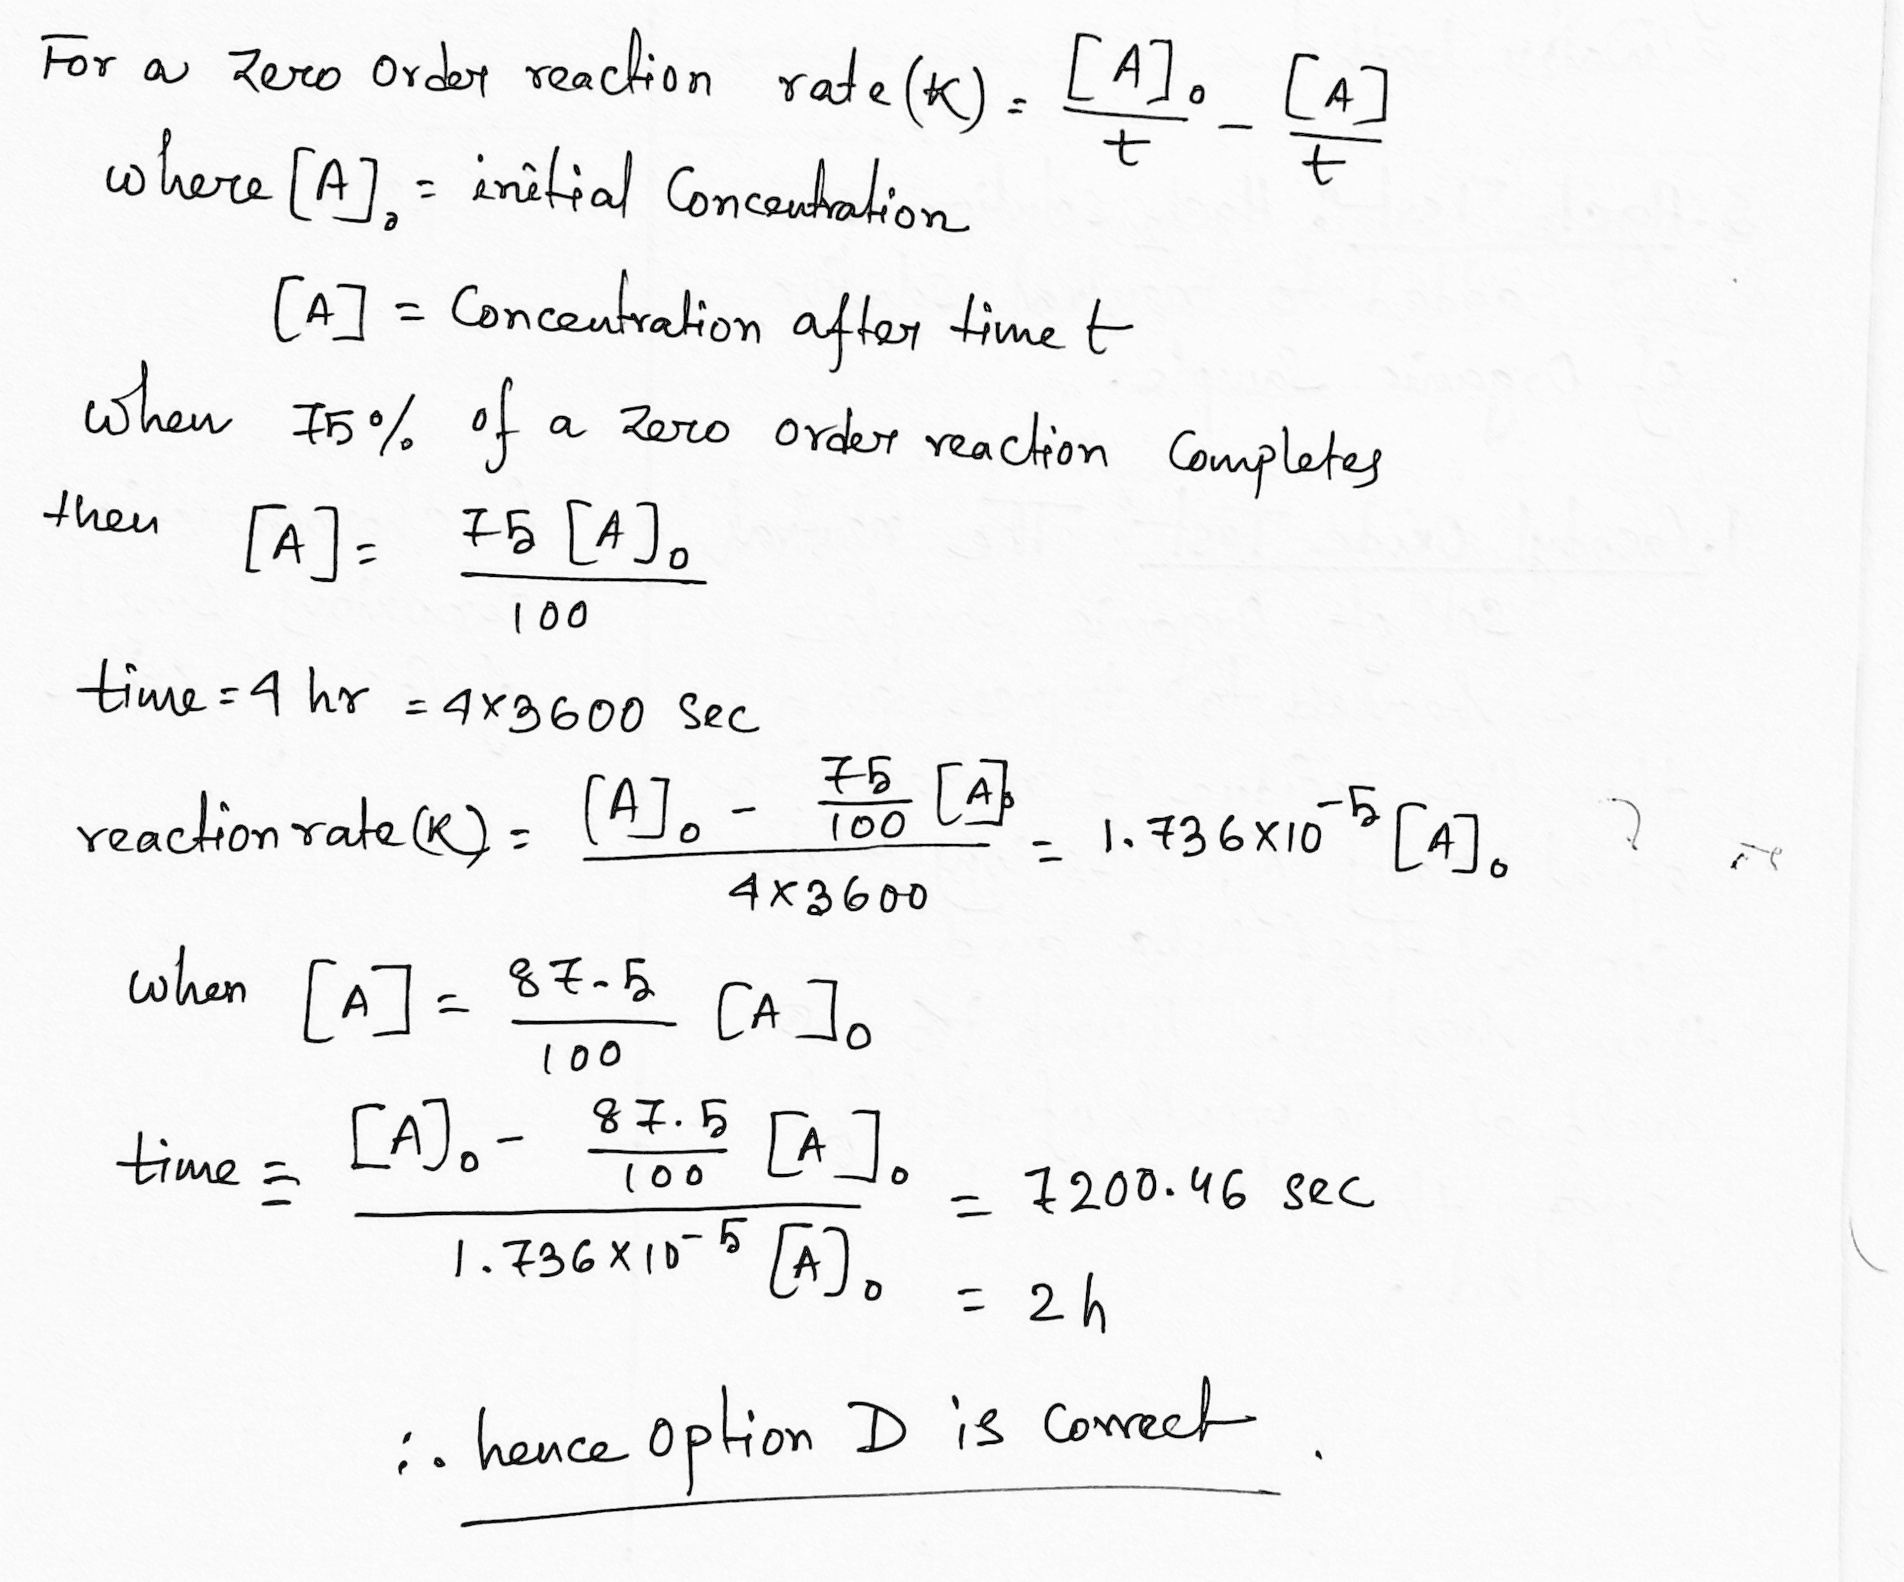 For a Zero Order reaction rate (K) = [A]₀/t - [A]/t
where [A]₀ = initial Concentration
[A] = Concentration after time t
when 75% of a Zero order reaction Completes
then [A] = 75 [A]₀/100
time = 4 hr = 4×3600 Sec
reaction rate (K) = ([A]₀ - 75/100 [A]₀)/(4×3600) = 1.736×10⁻⁵ [A]₀
when [A] = 87.5/100 [A]₀
time = ([A]₀ - 87.5/100 [A]₀)/(1.736×10⁻⁵ [A]₀) = 7200.46 sec
= 2h
∴ hence Option D is Correct.